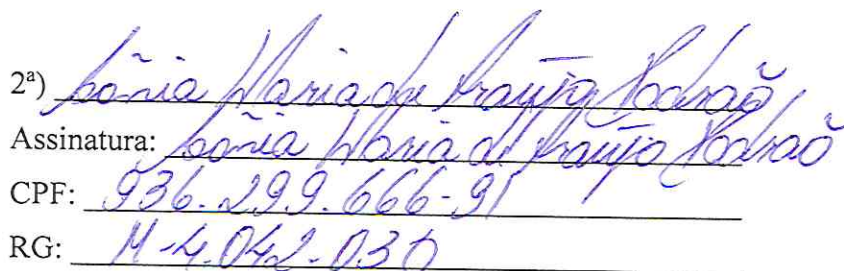 2ª) Sônia Maria de Araújo
Assinatura: Sônia Maria de Araújo
CPF: 936.299.666-91
RG: M-4.042.030